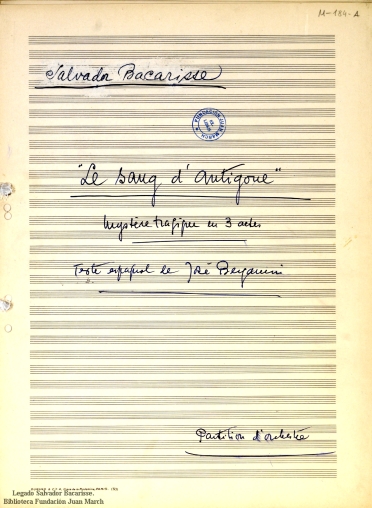 M-184-A
Salvador Bacarisse
FUNDACIÓN JUAN MARCH
"Le sang d'Antigone"
Mystère tragique en 3 actes
Texte espagnol de José Bergamin
Partition d'orchestre
Legado Salvador Bacarisse.
Biblioteca Fundación Juan March